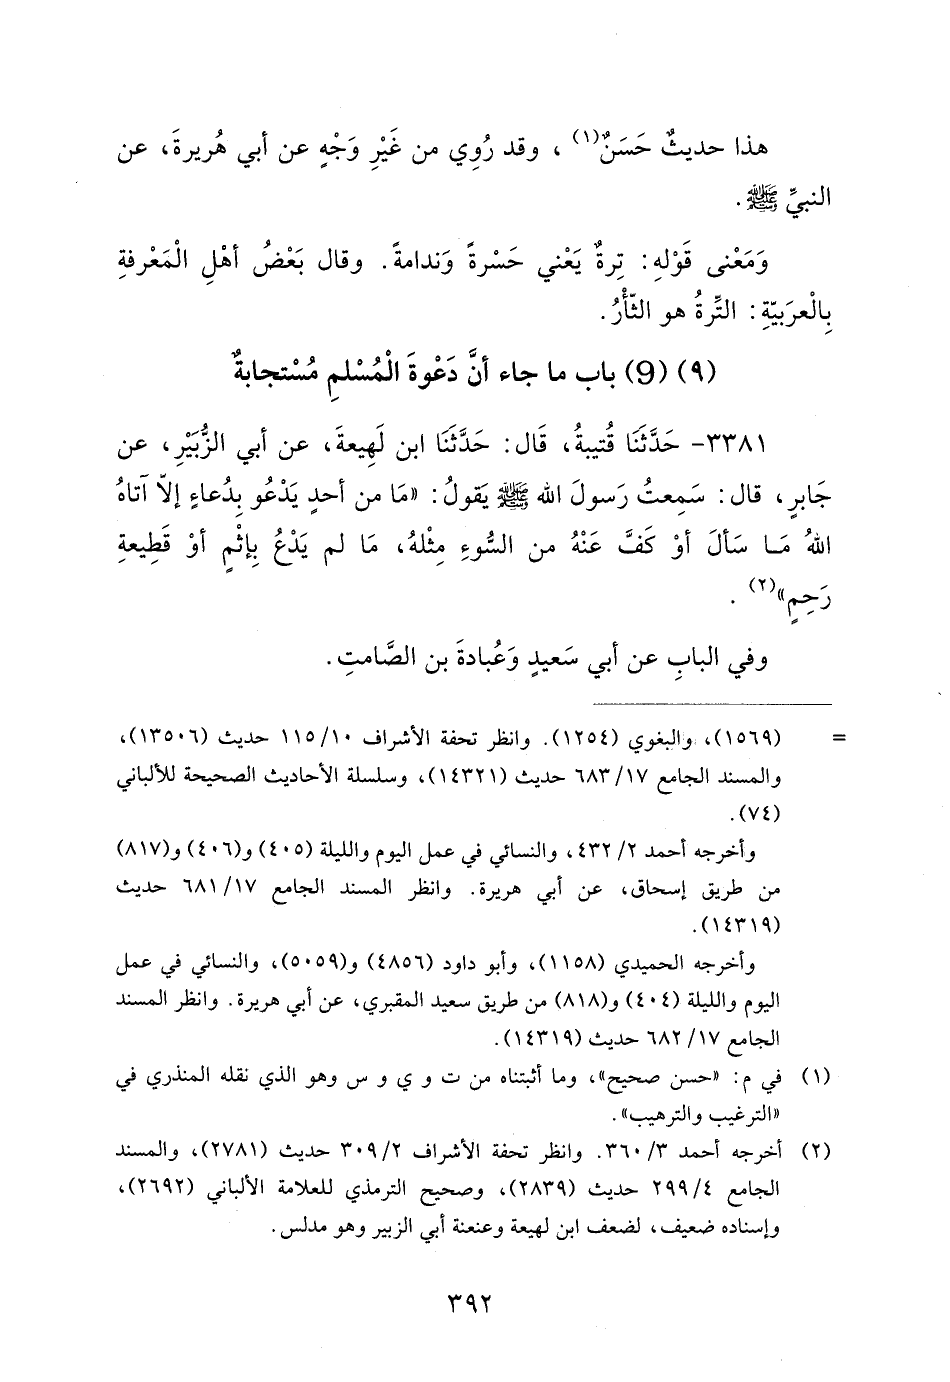 هذا حديثٌ حَسَنٌ(١) ، وقد رُوِي من غَيْرِ وَجْهٍ عن أبي هُريرةَ، عن
النبيِّ ﷺ.
وَمَعْنى قَوْلهِ: تِرةٌ يَعْني حَسْرةً وَندامةً. وقال بَعْضُ أهْلِ الْمَعْرفةِ
بِالْعرَبيّةِ: التِّرةُ هو الثّأْرُ.
(٩) (9) باب ما جاء أنَّ دَعْوةَ الْمُسْلمِ مُسْتجابةٌ
٣٣٨١- حَدَّثنَا قُتيبةُ، قَال: حَدَّثنَا ابن لَهِيعةَ، عن أبي الزُّبَيْرِ، عن
جَابرٍ، قال: سَمِعتُ رَسولَ الله ﷺ يَقولُ: «مَا من أحدٍ يَدْعُو بِدُعاءٍ إلاّ آتاهُ
اللهُ مَا سَألَ أوْ كَفَّ عَنْهُ من السُّوءِ مِثْلهُ، مَا لم يَدْعُ بِإثْمٍ أوْ قَطِيعةِ
رَحِمٍ»(٢) .
وفي البابِ عن أبي سَعيدٍ وَعُبادةَ بن الصَّامتِ.
= (١٥٦٩)، والبغوي (١٢٥٤). وانظر تحفة الأشراف ١١٥/١٠ حديث (١٣٥٠٦)،
والمسند الجامع ٦٨٣/١٧ حديث (١٤٣٢١)، وسلسلة الأحاديث الصحيحة للألباني
(٧٤).
وأخرجه أحمد ٤٣٢/٢، والنسائي في عمل اليوم والليلة (٤٠٥) و(٤٠٦) و(٨١٧)
من طريق إسحاق، عن أبي هريرة. وانظر المسند الجامع ٦٨١/١٧ حديث
(١٤٣١٩).
وأخرجه الحميدي (١١٥٨)، وأبو داود (٤٨٥٦) و(٥٠٥٩)، والنسائي في عمل
اليوم والليلة (٤٠٤) و(٨١٨) من طريق سعيد المقبري، عن أبي هريرة. وانظر المسند
الجامع ٦٨٢/١٧ حديث (١٤٣١٩).
(١) في م: «حسن صحيح»، وما أثبتناه من ت و ي و س وهو الذي نقله المنذري في
«الترغيب والترهيب».
(٢) أخرجه أحمد ٣٦٠/٣. وانظر تحفة الأشراف ٣٠٩/٢ حديث (٢٧٨١)، والمسند
الجامع ٢٩٩/٤ حديث (٢٨٣٩)، وصحيح الترمذي للعلامة الألباني (٢٦٩٢)،
وإسناده ضعيف، لضعف ابن لهيعة وعنعنة أبي الزبير وهو مدلس.
٣٩٢